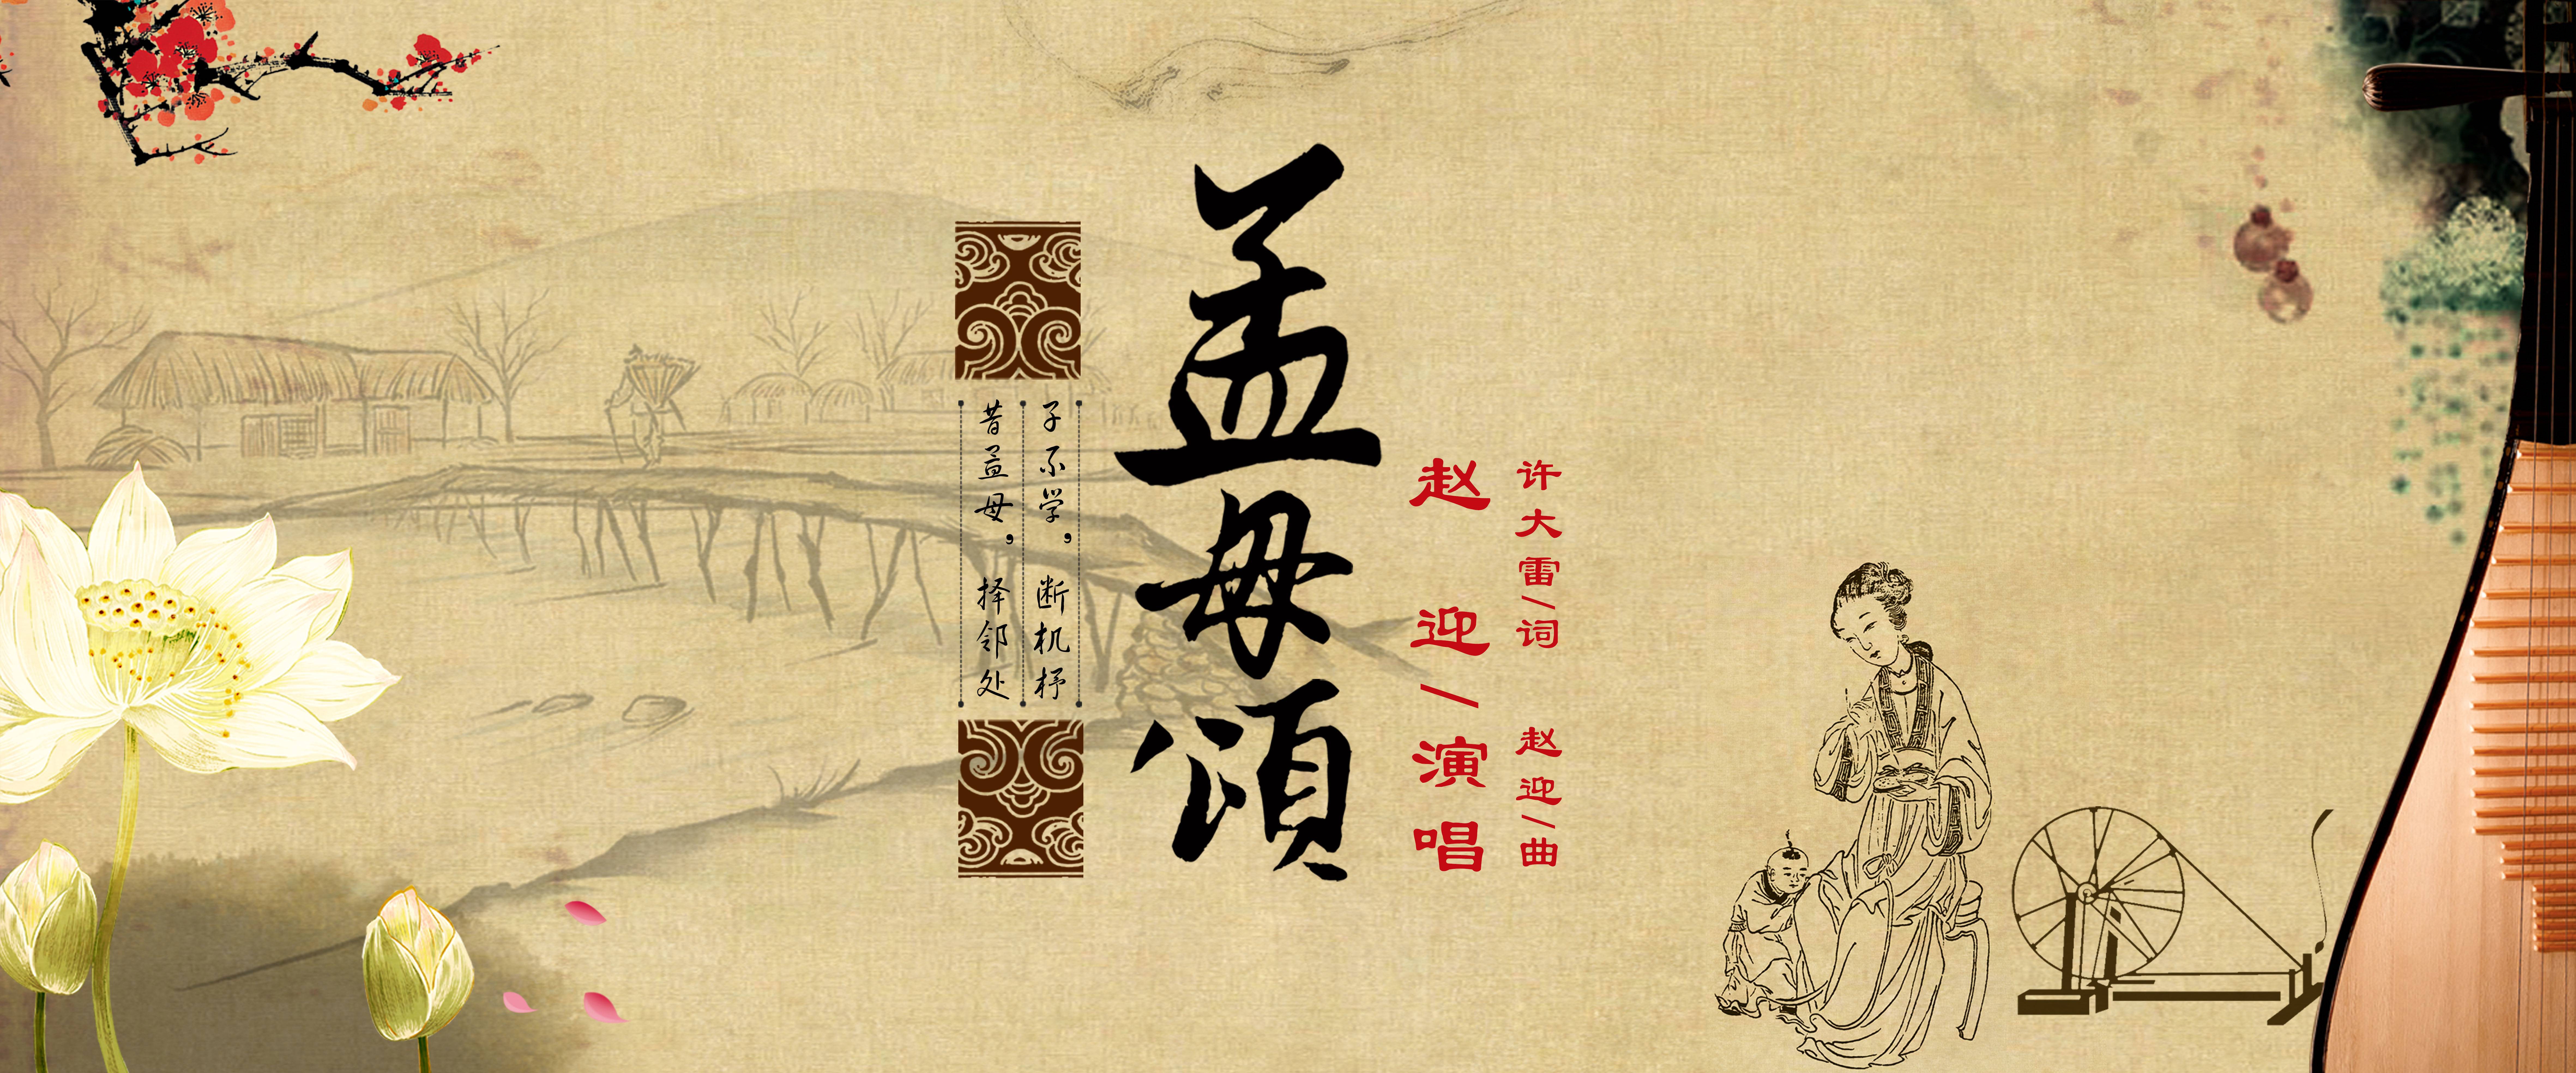 孟母颂
昔孟母,择邻处
子不学,断机杼
赵迎/演唱
许大雷/词 赵迎/曲